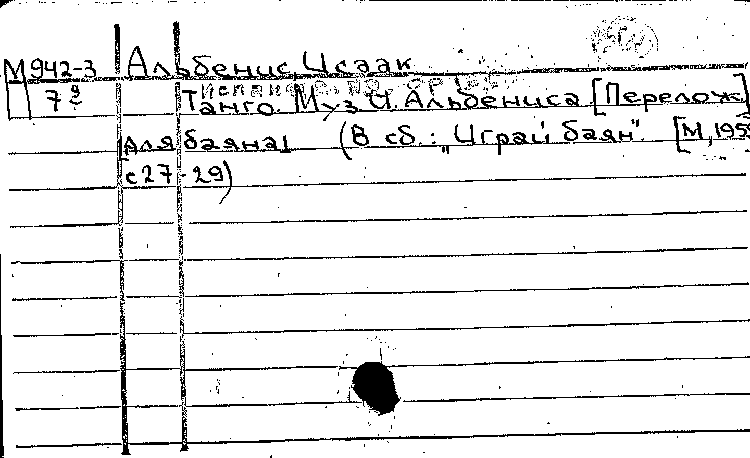 М942-3 Альбенис, Исаак
7
Танго. Муз И. Альбениса [Перелож
для баяна] (В сб.: "Играй баян". [М, 195
с 27-29)